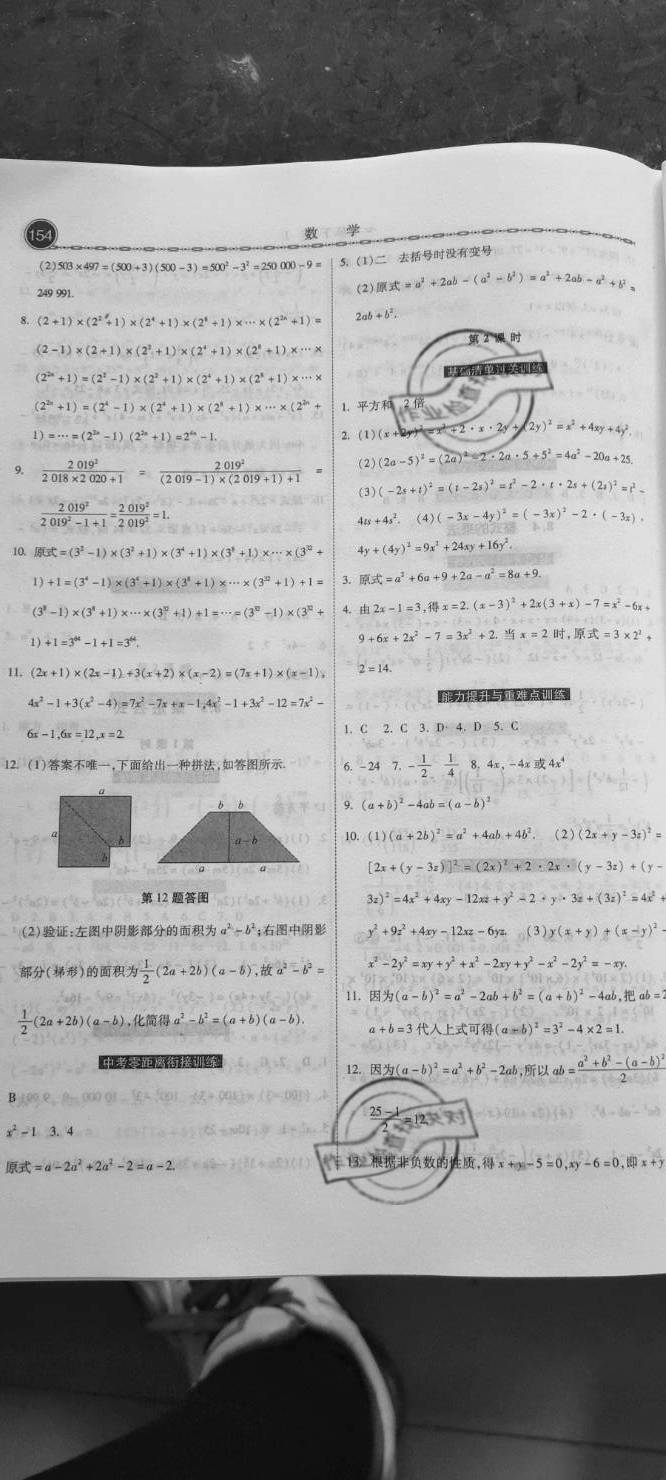 154
数 学
(2)503×497=(500+3)(500-3)=500²-3²=250 000-9=
249 991.
8. (2+1)×(2²+1)×(2⁴+1)×(2⁸+1)×…×(2²ⁿ+1)=
(2-1)×(2+1)×(2²+1)×(2⁴+1)×(2⁸+1)×…×
(2²ⁿ+1)=(2²-1)×(2²+1)×(2⁴+1)×(2⁸+1)×…×
(2²ⁿ+1)=(2⁴-1)×(2⁴+1)×(2⁸+1)×…×(2²ⁿ+
1)=…=(2²ⁿ-1)(2²ⁿ+1)=2⁴ⁿ-1.
9. 2 019²/(2 018×2 020+1) = 2 019²/((2 019-1)×(2 019+1)+1) =
2 019²/(2 019²-1+1)=2 019²/2 019²=1.
10. 原式=(3²-1)×(3²+1)×(3⁴+1)×(3⁸+1)×…×(3³²+
1)+1=(3⁴-1)×(3⁴+1)×(3⁸+1)×…×(3³²+1)+1=
(3⁸-1)×(3⁸+1)×…×(3³²+1)+1=…=(3³²-1)×(3³²+
1)+1=3⁶⁴-1+1=3⁶⁴.
11. (2x+1)×(2x-1)+3(x+2)×(x-2)=(7x+1)×(x-1),
4x²-1+3(x²-4)=7x²-7x+x-1,4x²-1+3x²-12=7x²-
6x-1,6x=12,x=2.
12. (1)答案不唯一,下面给出一种拼法,如答图所示.
a
a
b
b
b b
a-b
a a
第 12 题答图
(2)验证:左图中阴影部分的面积为 a²-b²;右图中阴影
部分(梯形)的面积为1/2(2a+2b)(a-b),故 a²-b²=
1/2(2a+2b)(a-b),化简得 a²-b²=(a+b)(a-b).
中考零距离衔接训练
B
x²-1 3. 4
原式=a-2a²+2a²-2=a-2.
5. (1)二 去括号时没有变号
(2)原式=a²+2ab-(a²-b²)=a²+2ab-a²+b²=
2ab+b².
第 2 课 时
基础清单过关训练
1. 平方和 2 倍
2. (1)(x+2y)²=x²+2·x·2y+(2y)²=x²+4xy+4y².
(2)(2a-5)²=(2a)²-2·2a·5+5²=4a²-20a+25.
(3)(-2s+t)²=(t-2s)²=t²-2·t·2s+(2s)²=t²-
4ts+4s². (4)(-3x-4y)²=(-3x)²-2·(-3x)·
4y+(4y)²=9x²+24xy+16y².
3. 原式=a²+6a+9+2a-a²=8a+9.
4. 由 2x-1=3,得 x=2.(x-3)²+2x(3+x)-7=x²-6x+
9+6x+2x²-7=3x²+2. 当 x=2 时,原式=3×2²+
2=14.
能力提升与重难点训练
1. C 2. C 3. D 4. D 5. C
6. -24 7. -1/2 1/4 8. 4x,-4x 或 4x⁴
9. (a+b)²-4ab=(a-b)²
10. (1)(a+2b)²=a²+4ab+4b². (2)(2x+y-3z)²=
[2x+(y-3z)]²=(2x)²+2·2x·(y-3z)+(y-
3z)²=4x²+4xy-12xz+y²-2·y·3z+(3z)²=4x²+
y²+9z²+4xy-12xz-6yz. (3)y(x+y)+(x-y)²-
x²-2y²=xy+y²+x²-2xy+y²-x²-2y²=-xy.
11. 因为(a-b)²=a²-2ab+b²=(a+b)²-4ab,把 ab=2
a+b=3 代入上式可得(a-b)²=3²-4×2=1.
12. 因为(a-b)²=a²+b²-2ab,所以 ab=(a²+b²-(a-b)²)/2
(25-1)/2=12.
13. 根据非负数的性质,得 x+y-5=0,xy-6=0,即 x+y